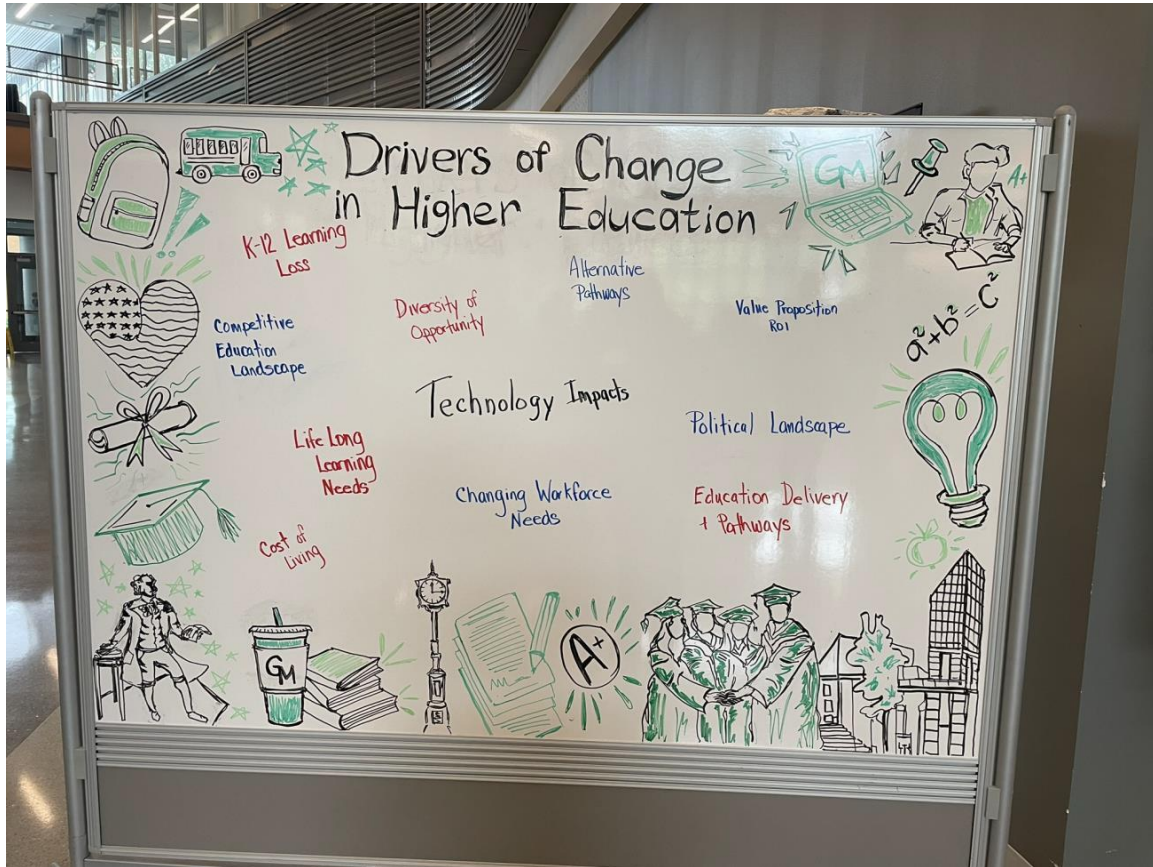 Drivers of Change
in Higher Education
GM
A+
K-12 Learning
Loss
Alternative
Pathways
Diversity of
Opportunity
Value Proposition
ROI
a²+b²=c²
Competitive
Education
Landscape
Technology Impacts
Political Landscape
Life Long
Learning
Needs
Changing Workforce
Needs
Education Delivery
+ Pathways
Cost of
Living
GM
A+